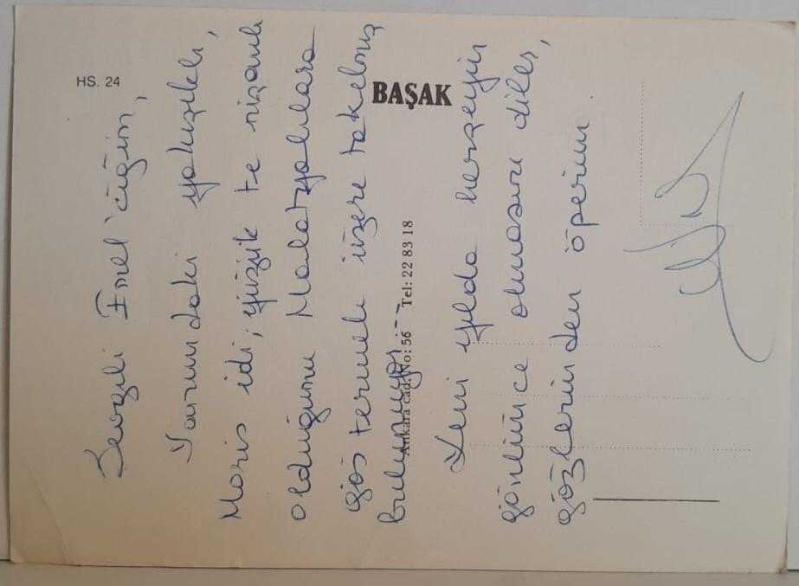 HS. 24
BAŞAK
Ankara Cad. No: 56 Tel: 22 83 18
Sevgili Emel'ciğim,
Yanımdaki yakışıklı,
Moris idi, yüzük te nişanlı
olduğumu Malatyalılara
göstermek üzere takılmış
bulunuyor.
Yeni yılda herşeyin
gönlünce olmasını diler,
gözlerinden öperim.